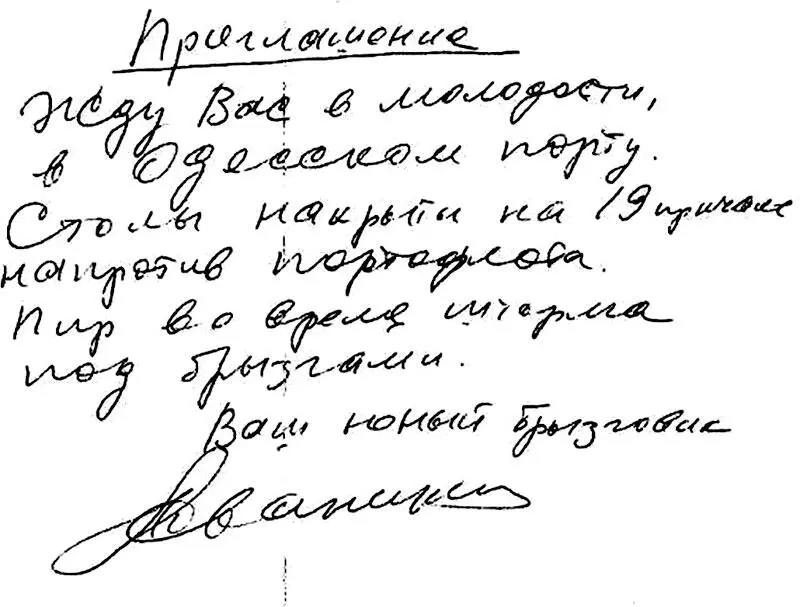 Приглашение
Жду Вас в молодости,
в Одесском порту.
Столы накрыты на 19 причале
напротив портофлота.
Пир во время шторма
под брызгами.
Ваш юный брызговик